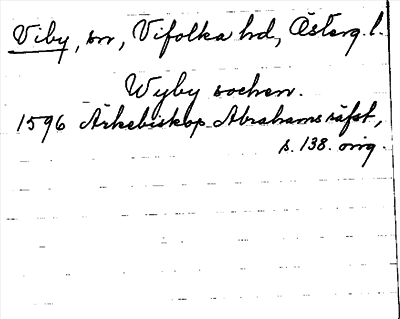 Viby, sn, Vifolka hd, Österg. l.
Wyby sochen.
1596 Ärkebiskop Abrahams räfst,
s. 138. orig.